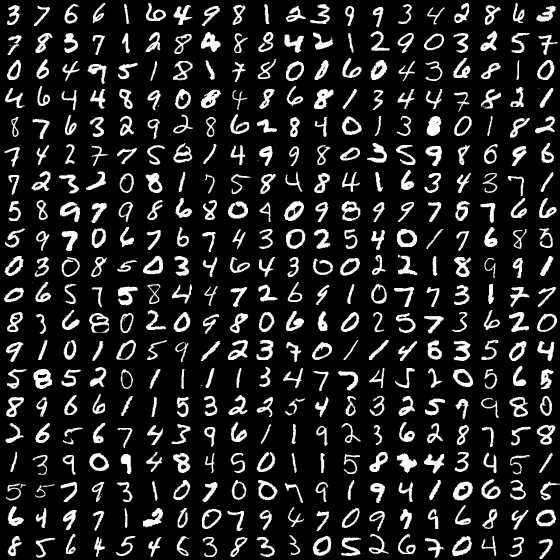 3 7 6 6 1 6 4 9 8 1 2 3 9 9 3 4 2 8 6 3
7 8 3 7 1 2 8 8 8 4 2 1 2 9 0 3 2 5 7
0 6 4 9 5 1 8 1 7 8 0 1 6 0 4 3 6 8 1 0
4 6 4 4 8 9 0 8 4 8 6 8 1 3 4 4 7 8 2 1
8 7 6 3 2 9 2 8 6 2 8 4 0 1 3 8 0 1 8 2
7 4 2 7 7 5 8 1 4 9 9 8 0 3 5 9 8 6 9 6
7 2 3 2 0 8 1 7 5 8 4 8 4 1 6 3 4 3 7 1
5 8 9 7 9 8 6 8 0 4 0 9 8 9 9 7 8 7 6 6
5 9 7 0 6 7 6 7 4 3 0 2 5 4 0 1 7 6 8 3
0 3 0 8 5 0 3 4 6 4 3 0 0 2 2 1 8 9 9 1
0 6 5 7 5 8 4 4 7 2 6 9 1 0 7 7 3 1 7 7
8 3 6 8 0 2 0 9 8 0 6 6 0 2 5 7 3 6 2 0
9 1 0 1 0 5 9 1 2 3 7 0 1 1 4 6 3 5 0 4
5 8 5 2 0 1 1 1 1 3 4 7 7 4 5 2 0 5 6 5
8 9 6 6 1 1 5 3 2 2 5 4 8 3 2 5 9 9 8 0
2 6 5 6 7 4 3 9 6 1 1 9 2 3 6 2 8 7 5 8
1 3 9 0 9 4 8 4 5 0 1 1 5 8 4 3 4 5 1
5 5 7 9 3 1 0 7 0 0 7 9 1 9 4 1 0 6 3 5
6 4 9 7 1 2 0 0 7 9 4 7 0 9 7 9 6 8 4 0
8 5 6 4 5 4 6 3 8 3 3 0 5 2 6 7 0 4 3 7